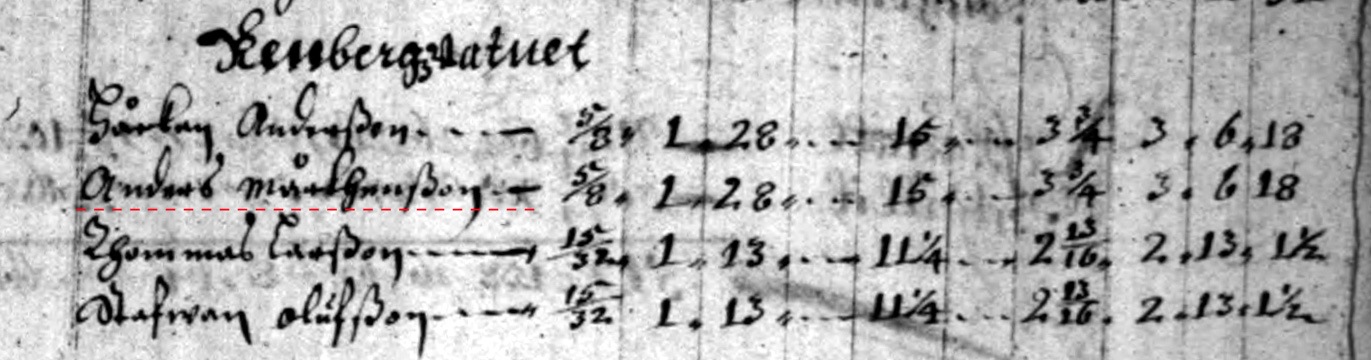 Renbergzvatnet
Håkan Anderßon 5/8 1 28 15 3 3/4 3 6 18
Anders mårthenßon 5/8 1 28 15 3 3/4 3 6 18
Thommas Larßon 15/32 1 13 11 1/4 2 13/16 2 13 1 1/2
Stafwan olufßon 15/32 1 13 11 1/4 2 13/16 2 13 1 1/2